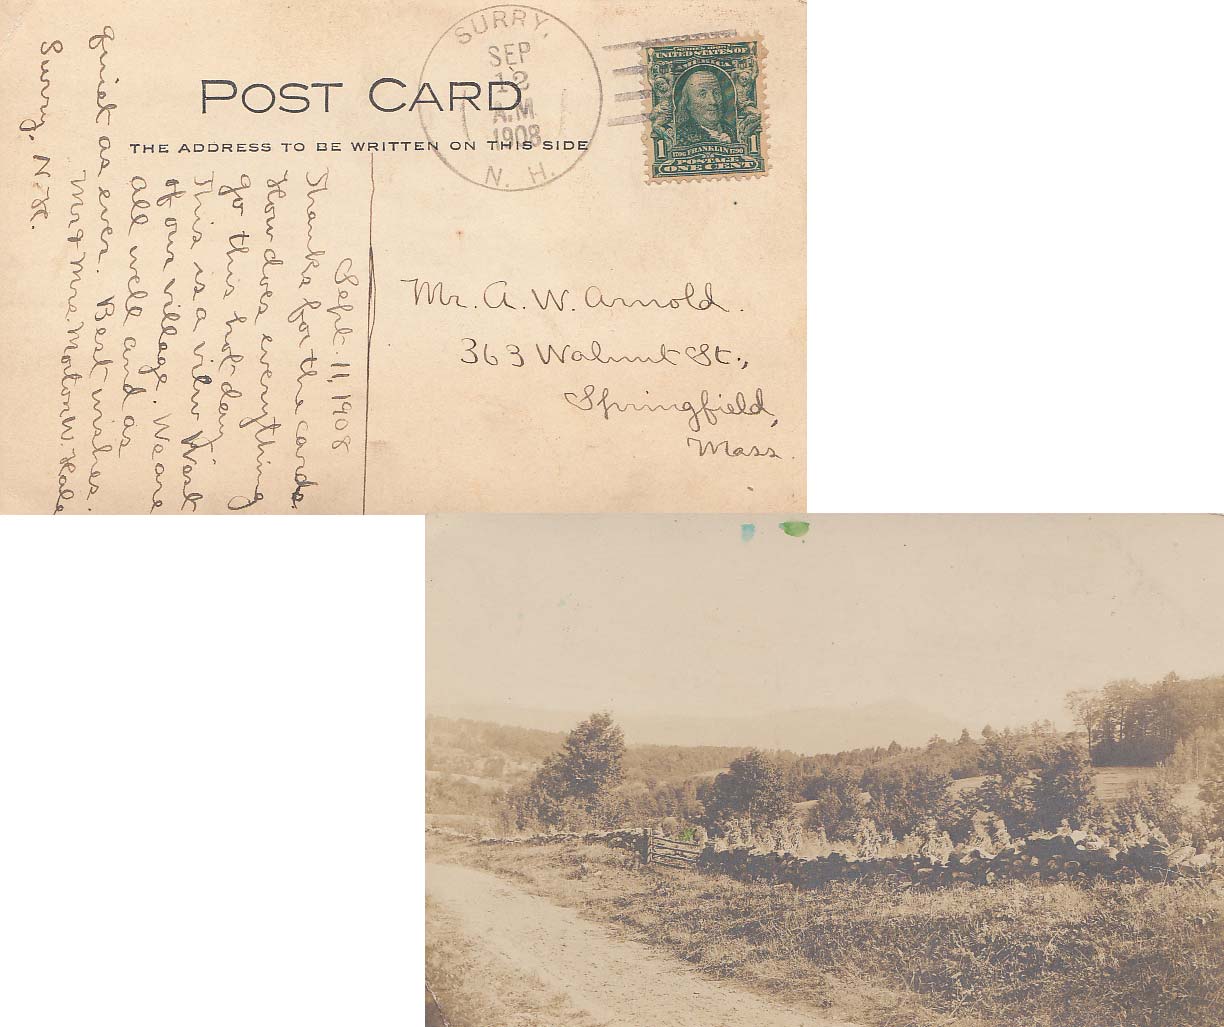 POST CARD
THE ADDRESS TO BE WRITTEN ON THIS SIDE
SURRY,
SEP
12
A.M
1908
N. H.
SERIES 1902
UNITED STATES OF
AMERICA
1 1706 FRANKLIN 1790 1
POSTAGE
ONE CENT
Mr. A. W. Arnold.
363 Walnut St.,
Springfield,
Mass.
Sept. 11, 1908
Thanks for the cards.
How does everything
go this hot day?
This is a view West
of our village. We are
all well and as
quiet as ever. Best wishes.
Mr & Mrs. Morton W. Hale
Surry, N.H.